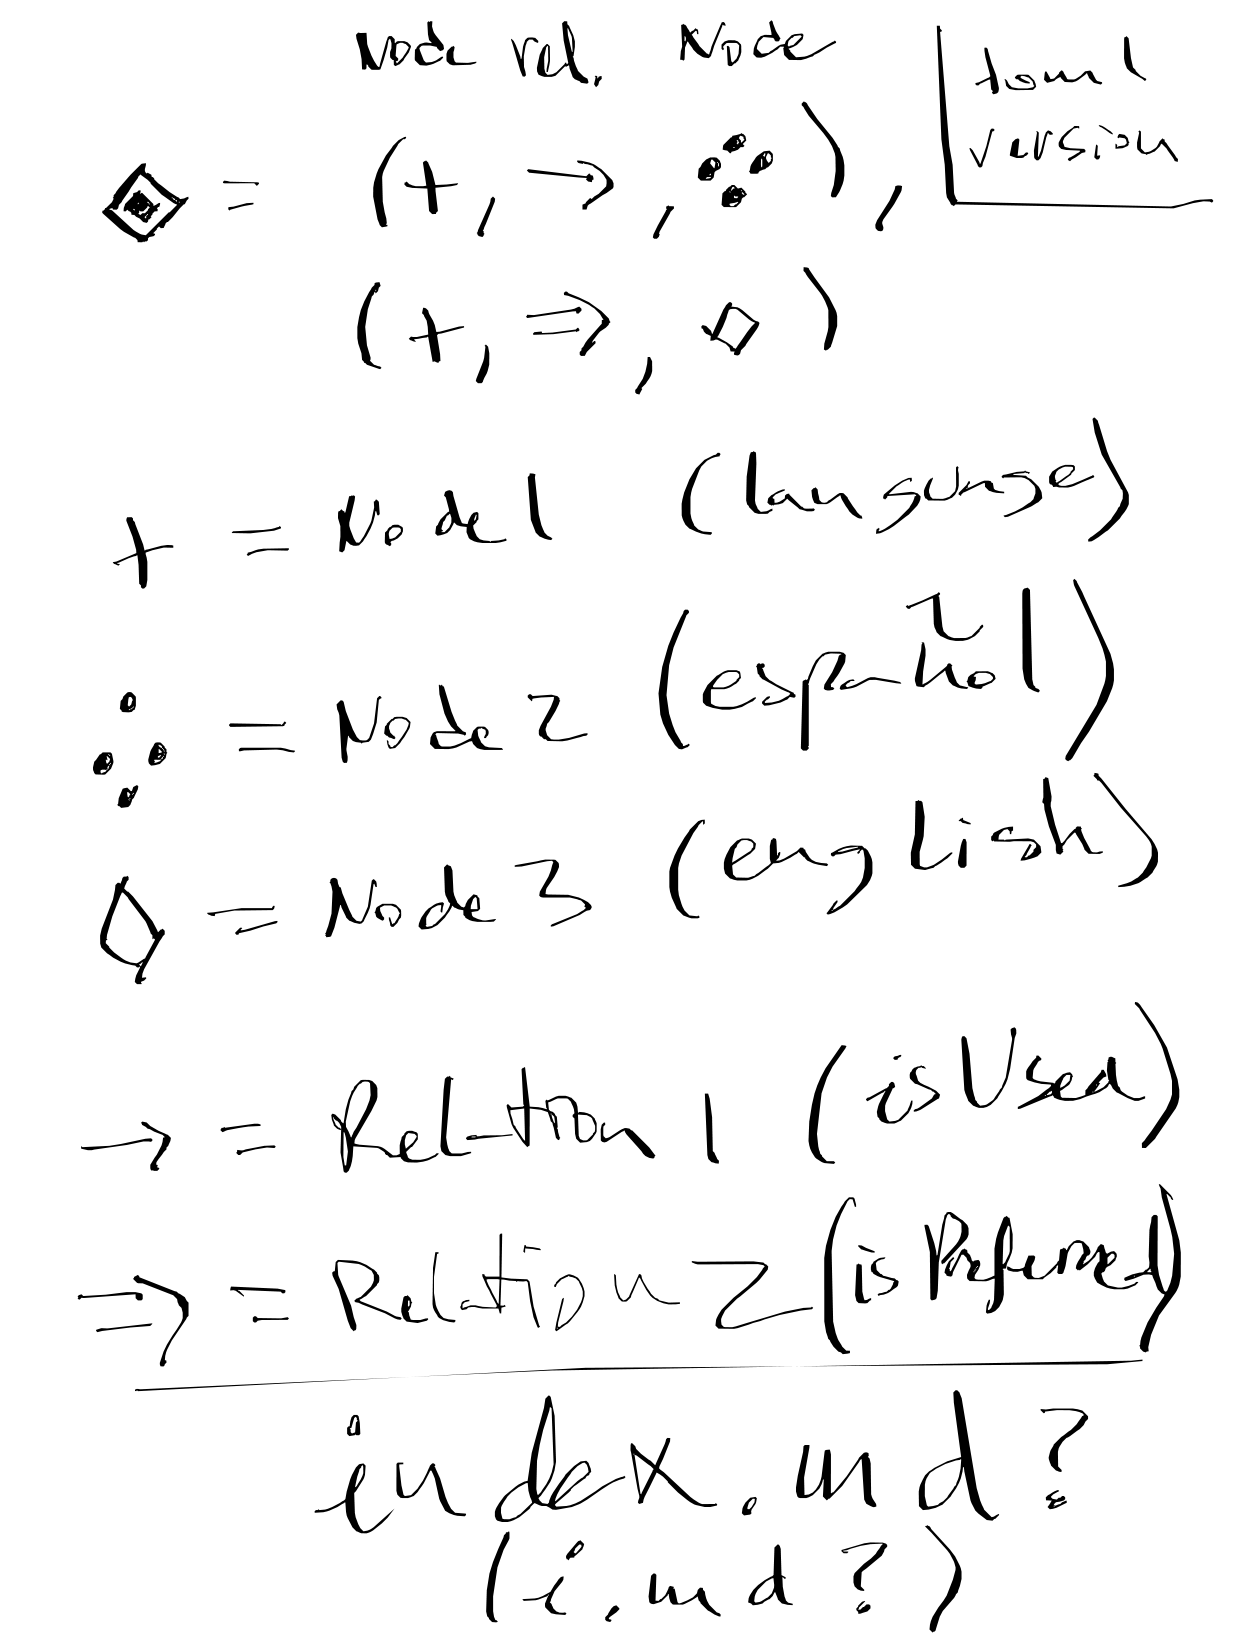 Node rel. Node
toml
version
◈ = (+, →, ⁘),
(+, ⇒, ◇)
+ = Node 1 (language)
⁘ = Node 2 (español)
◇ = Node 3 (english)
→ = Relation 1 (isUsed)
⇒ = Relation 2 (isPreferred)
index.md?
(i.md?)